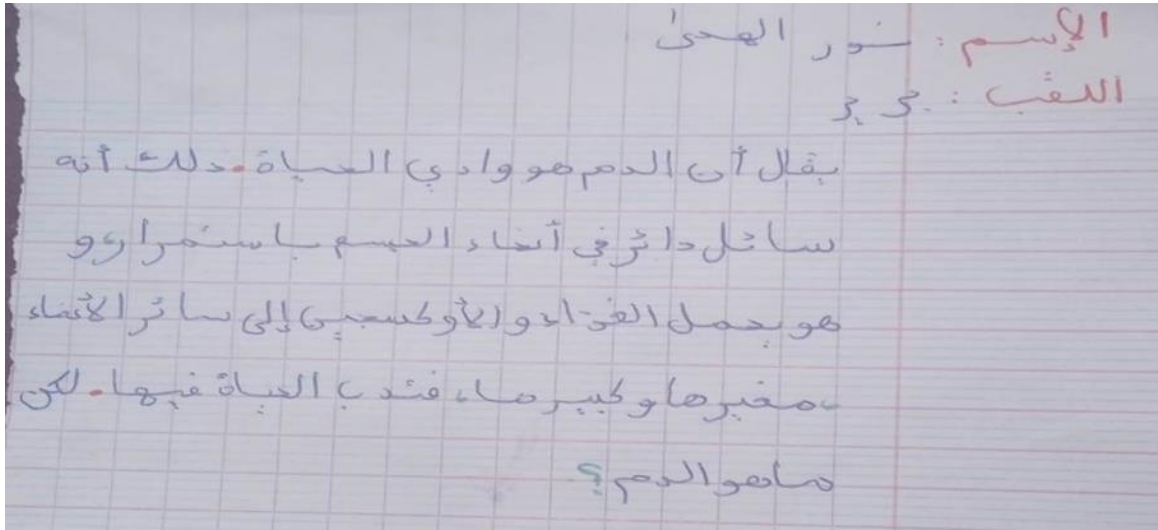 الإسم : نور الهدى
اللقب :
يقال أن الدم هو وادي الحياة. ذلك أنه
سائل دائر في أنحاء الجسم باستمرار، و
هو يحمل الغذاء و الأوكسجين إلى سائر الأنحاء
صغيرها وكبيرها، فتدب الحياة فيها. لكن
ما هو الدم ؟